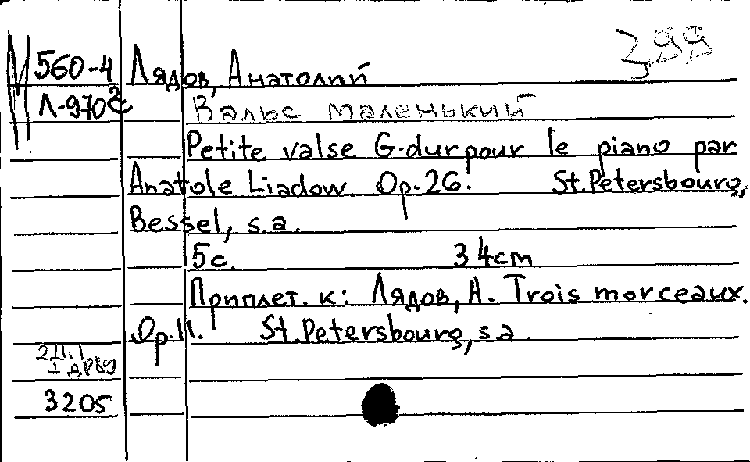 399
560-4 Лядов, Анатолий
Л-970 Вальс маленький
Petite valse G-dur pour le piano par
Anatole Liadow Op.26. St.Petersbourg,
Bessel, s.a.
5с. 34cm
Приплет. к: Лядов, А. Trois morceaux.
Op.11. St.Petersbourg, s.a.
3205